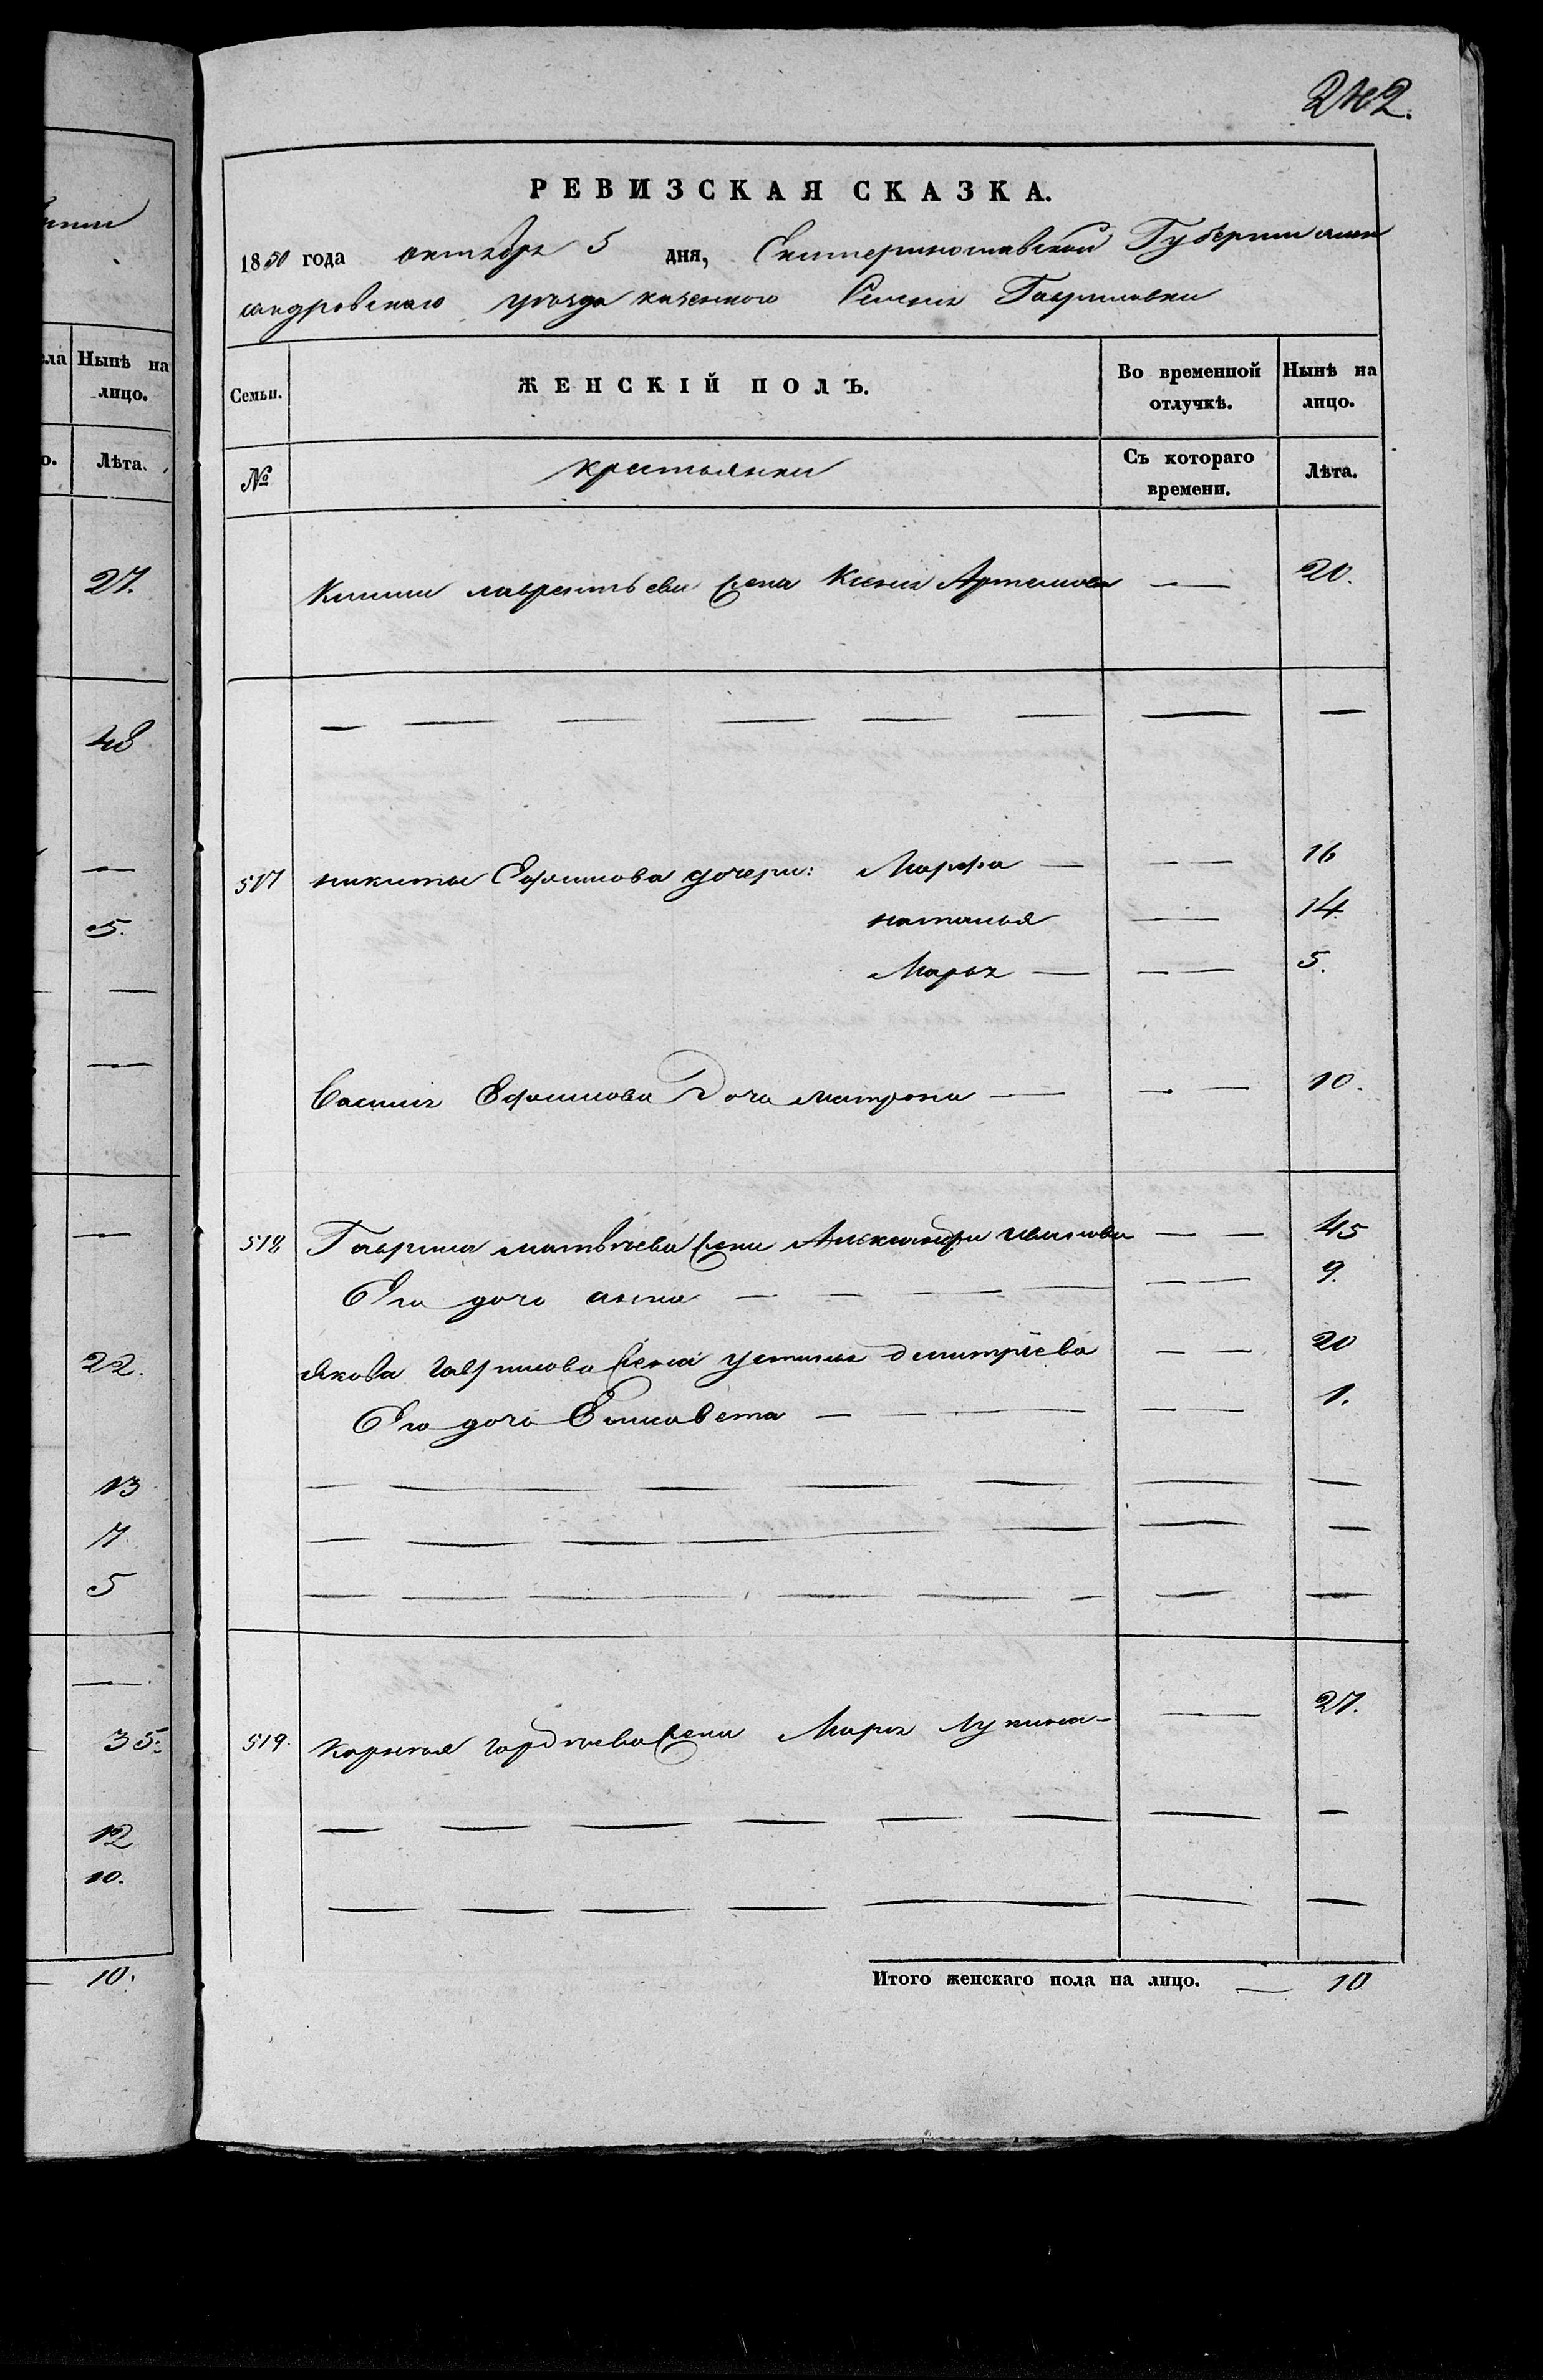 242.
РЕВИЗСКАЯ СКАЗКА.
1850 года октября 5 дня, Екатеринославской Губернии алек
сандровского уезда казенного Селения Гавриловки
ла Нынѣ на лицо.
о. Лѣта.
27.
48
5.
22.
13
7
5
35.
12
10.
10.
Семьи. ЖЕНСКІЙ ПОЛЪ. Во временной отлучкѣ. Нынѣ на лицо.
№ крестьянки Съ котораго времени. Лѣта.
лаврентьева жена Ксения Артемова — 20.
517 никиты Ефимова дочери: Марфа — — — 16
наталья — — 14.
Марья — — — 5.
Василия Ефимова Дочь матрона — — — 10.
518 Гаврила матвѣева жена Александра иванова — — 45
Его дочь анна — — — — — — 9.
якова гаврилова жена устинья дмитріева — — 20
Его дочь Елисавета — — — — — 1.
519. Корнея гордѣева жена Марья лукина — — 27.
Итого женскаго пола на лицо. — 10